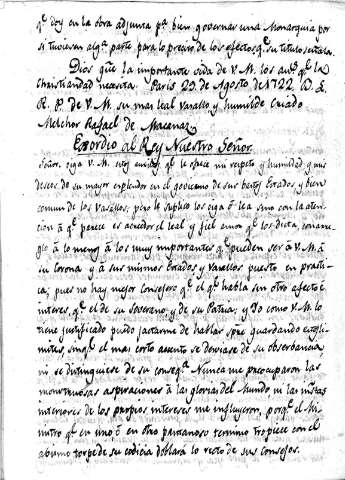 qe doy en la obra adjunta pa bien governar una Monarquia por
si tuvieran alga parte para lo preciso de los efectos qe su titulo señala.
Dios gue la importante vida de V. M. los ans qe la
Christiandad necesita. Paris 29. de Agosto de 1722. D. L.
R. P. de V. M. su mas leal Vasallo y humilde criado
Melchor Rafael de Macanaz
Exordio al Rey Nuestro Señor.
Señor. oiga V. M. estos avisos qe le ofrece mi respeto y humildad y mis
deseos de su mayor esplendor en el govierno de sus bastos Estados y bien
comun de los vasallos; pero le suplico los oiga ó lea sino con la aten-
cion á qe parece es acreedor el leal y fiel amor qe los dicta,
á lo menos á los muy importantes qe pueden ser á V. M. á
su Corona y á sus mismos Estados y Vasallos puesto en practi-
ca; pues no hay mejor Consejero qe el qe habla sin otro afecto é
interes, qe el de su Soverano y de su Patria; y Yo como V. M. lo
tiene justificado puedo jactarme de hablar spre guardando estos
limites, sin qe el mas corto acento se desviase de su observancia
ni se distinguiese de su conseqa Nunca me preocuparon las
monstruosas aspiraciones á las glorias del Mundo ni las miras
interiores de los propios intereses me influyeron, porqe el Mi-
nistro qe en uno ó en otro pantanoso termino tropiece con el
abismo torpe de su codicia doblará lo recto de sus consejos.